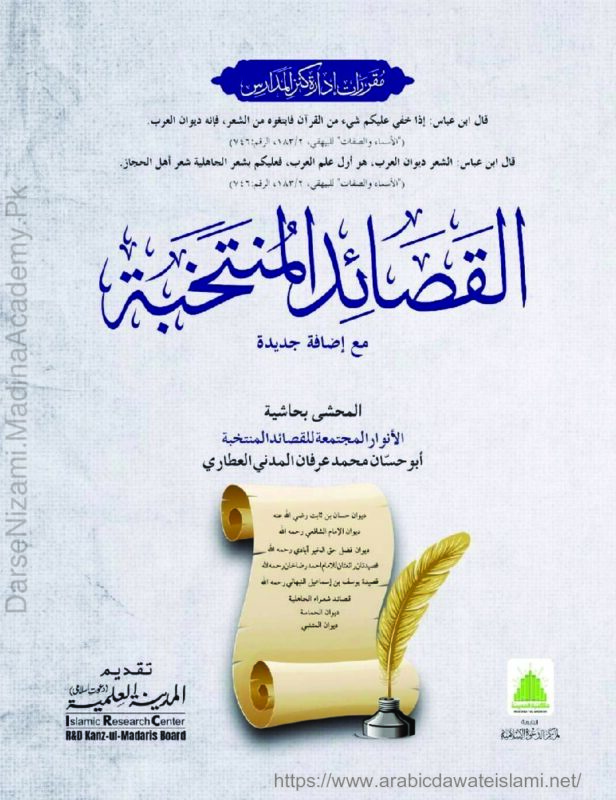 مُقرَّرات إدارة كنز المدارس
قال ابن عباس: إذا خفي عليكم شيء من القرآن فابتغوه من الشعر، فإنه ديوان العرب.
("الأسماء والصفات" للبيهقي، ١٨٣/٢، الرقم: ٧٤٦)
قال ابن عباس: الشعر ديوان العرب، هو أول علم العرب، فعليكم بشعر الجاهلية شعر أهل الحجاز.
("الأسماء والصفات" للبيهقي، ١٨٣/٢، الرقم: ٧٤٦)
القَصَائِد المُنتَخَبَة
مع إضافة جديدة
المحشى بحاشية
الأنوار المجتمعة للقصائد المنتخبة
أبو حسّان محمد عرفان المدني العطاري
ديوان حسان بن ثابت رضي الله عنه
ديوان الإمام الشافعي رحمه الله
ديوان فضل حق الخير آبادي رحمه الله
قصيدتان رائعتان للإمام احمد رضا خان رحمه الله
قصيدة يوسف بن إسماعيل النبهاني رحمه الله
قصائد شعراء الجاهلية
ديوان الحماسة
ديوان المتنبي
تقديم
المدينة العلمية (دعوت اسلامی)
Islamic Research Center
R&D Kanz-ul-Madaris Board
التابعة
لمركز الدعوة الإسلامية
DarseNizami.MadinaAcademy.Pk
https://www.arabicdawateislami.net/